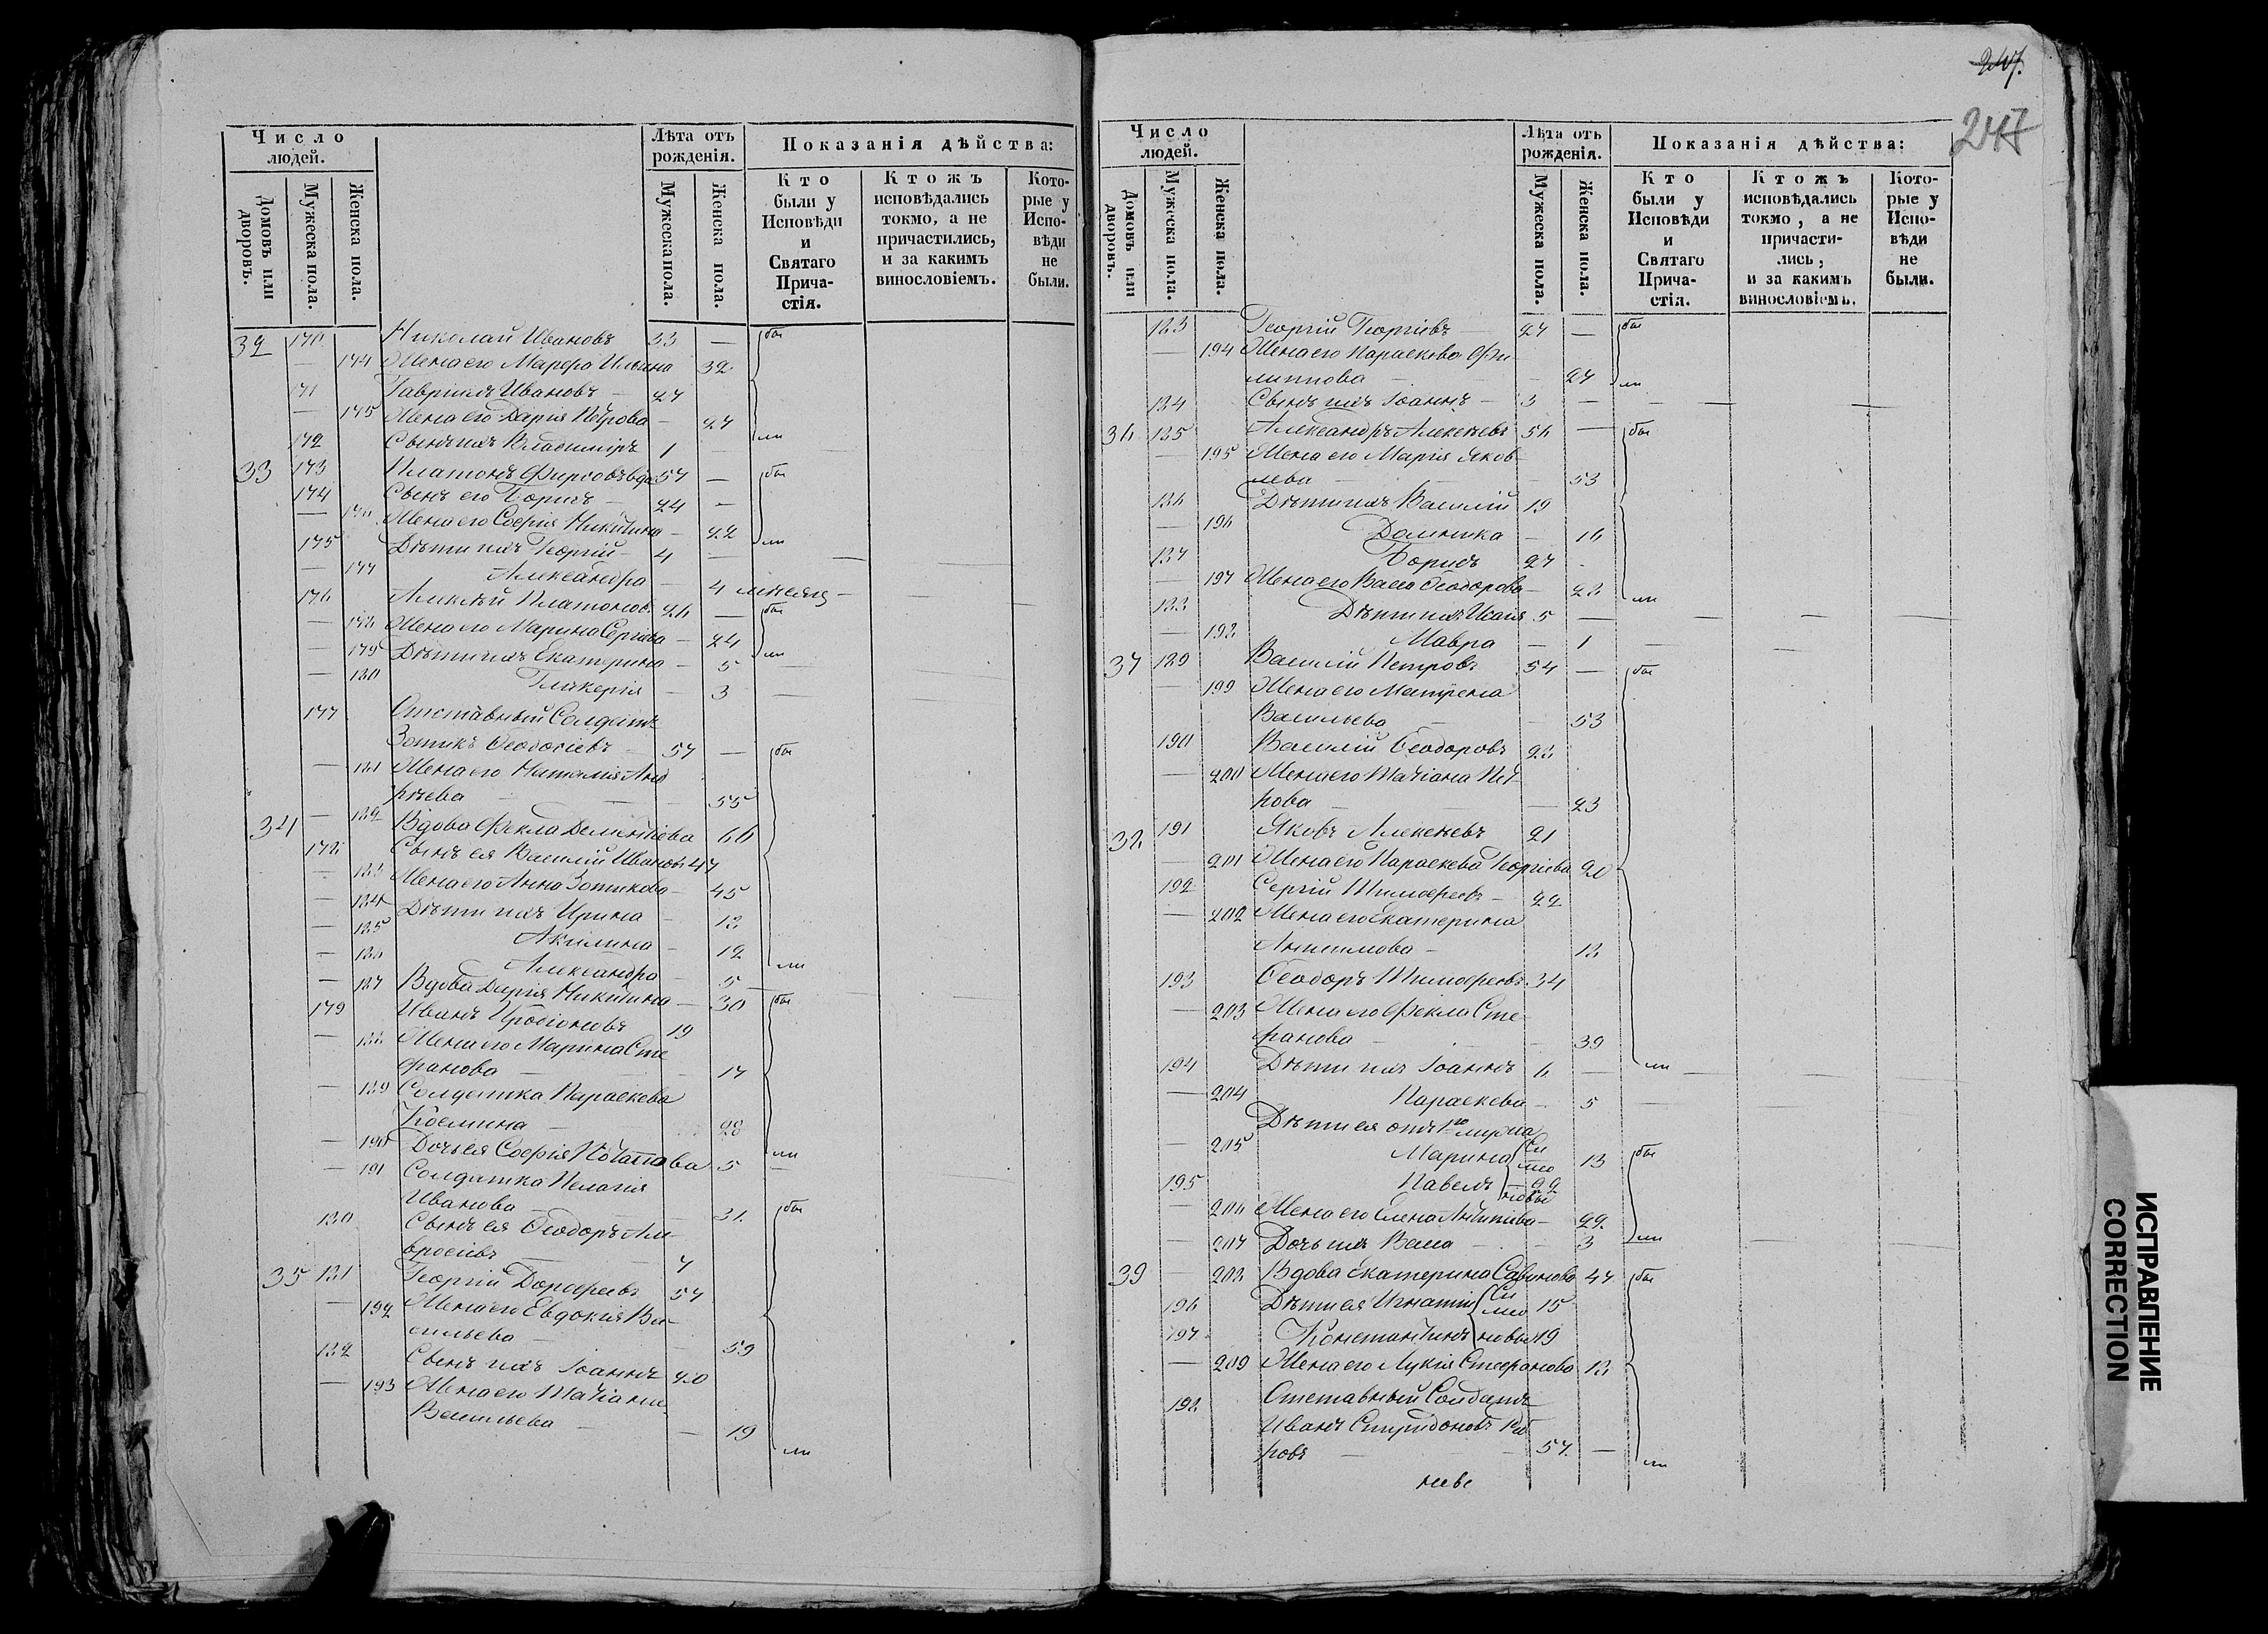 Число людей.
Лѣта отъ рожденія.
Показанія дѣйства:
Домовъ или дворовъ.
Мужеска пола.
Женска пола.
Мужеска пола.
Женска пола.
Кто были у Исповѣди и Святаго Прича-стія.
Ктожъ исповѣдались токмо, а не причастились, и за какимъ винословіемъ.
Кото-рые у Испо-вѣди не были.
32 170 Николай Ивановъ 33 — бы
— 174 Жена его Марѳа Ильина 32
171 Гавріилъ Ивановъ — 27
— 175 Жена его Дарія Петрова — 27 ли
172 Сынъ ихъ Владиміръ 1 —
33 173 Платонъ Фирсовъ вдо 57 — бы
174 Сынъ его Борисъ — 24 —
— 176 Жена его Софія Никитина — 22 ли
175 Дѣти ихъ Георгій — 4 —
— 177 Александра — 4 мѣсяц —
176 Алексѣй Платонов. 26 — бы
— 178 Жена его Марина Сергѣева — 24
— 179 Дѣти ихъ Екатерина — 5 ли
— 180 Гликерія — 3 —
177 Отставный Солдатъ
Зотикъ Ѳеодосіевъ — 57 — бы
— 181 Жена его Наталія Анд
рѣева — 55
34 — 182 Вдова Ѳекла Дементіева 66
178 Сынъ ея Василій Ивановъ 47
— 183 Жена его Анна Зотикова — 45
— 184 Дѣти ихъ Ирина — 18
— 185 Акилина — 12
— 186 Александра — 5 ли
— 187 Вдова Дарія Никитина — 30 бы
179 Иванъ Иродіоновъ 19
— 188 Жена его Марина Сте
фанова — 17
— 189 Солдатка Параскева
Космина — 28
— 190 Дочь ея Софія Потапова 5 — ли
— 191 Солдатка Пелагія
Иванова — 38 бы
180 Сынъ ея Ѳеодоръ Ам-
вросіевъ — 7
35 181 Георгій Дороѳеевъ 57
— 192 Жена его Евдокія Ва-
сильева — 59
182 Сынъ ихъ Іоаннъ 20
— 193 Жена его Татіана
Васильева — 19 ли
247.
247
Число людей.
Лѣта отъ рожденія.
Показанія дѣйства:
Домовъ или дворовъ.
Мужеска пола.
Женска пола.
Мужеска пола.
Женска пола.
Кто были у Исповѣди и Святаго Прича-стія.
Ктожъ исповѣдались токмо, а не причасти-лись, и за какимъ винословіемъ.
Кото-рые у Испо-вѣди не были.
183 Георгій Георгіевъ 27 — бы
— 194 Жена его Параскева Фи
липпова — 27 ли
184 Сынъ ихъ Іоаннъ — 3 —
36 185 Александръ Алексѣевъ 56 — бы
— 195 Жена его Марія Яков
лева — 53
186 Дѣти ихъ Василій 19
— 196 Домника — 16
187 Борисъ 27
— 197 Жена его Васса Ѳеодорова — 28 ли
188 Дѣти ихъ Исаія 5 —
— 198 Мавра — 1
37 189 Василій Петровъ 54 — бы
— 199 Жена его Матрена
Васильева — 53
190 Василій Ѳеодоровъ 28
— 200 Жена его Татіана Пет
рова — 23
38 191 Яковъ Алексѣевъ 21
— 201 Жена его Параскева Георгіева 20
192 Сергій Тимоѳеевъ — 22
— 202 Жена его Екатерина
Анисимова — 18
193 Ѳеодоръ Тимоѳеевъ 34
— 203 Жена его Ѳекла Сте
фанова — 39
194 Дѣти ихъ Іоаннъ 6 — ли
— 204 Параскева — 5
Дѣти ея отъ 1го мужа
— 205 Марина Си мео 13 бы
195 Павелъ новы 22
— 206 Жена его Елена Антипова — 22
— 207 Дочь ихъ Васса — 3 ли
39 — 208 Вдова Екатерина Савинова 47 бы
196 Дѣти ея Игнатій Си мео 15
197 Константинъ новы 19
— 209 Жена его Лукія Стефанова 18
198 Отставный Солдатъ
Иванъ Спиридоновъ
ровъ — 57 — ли